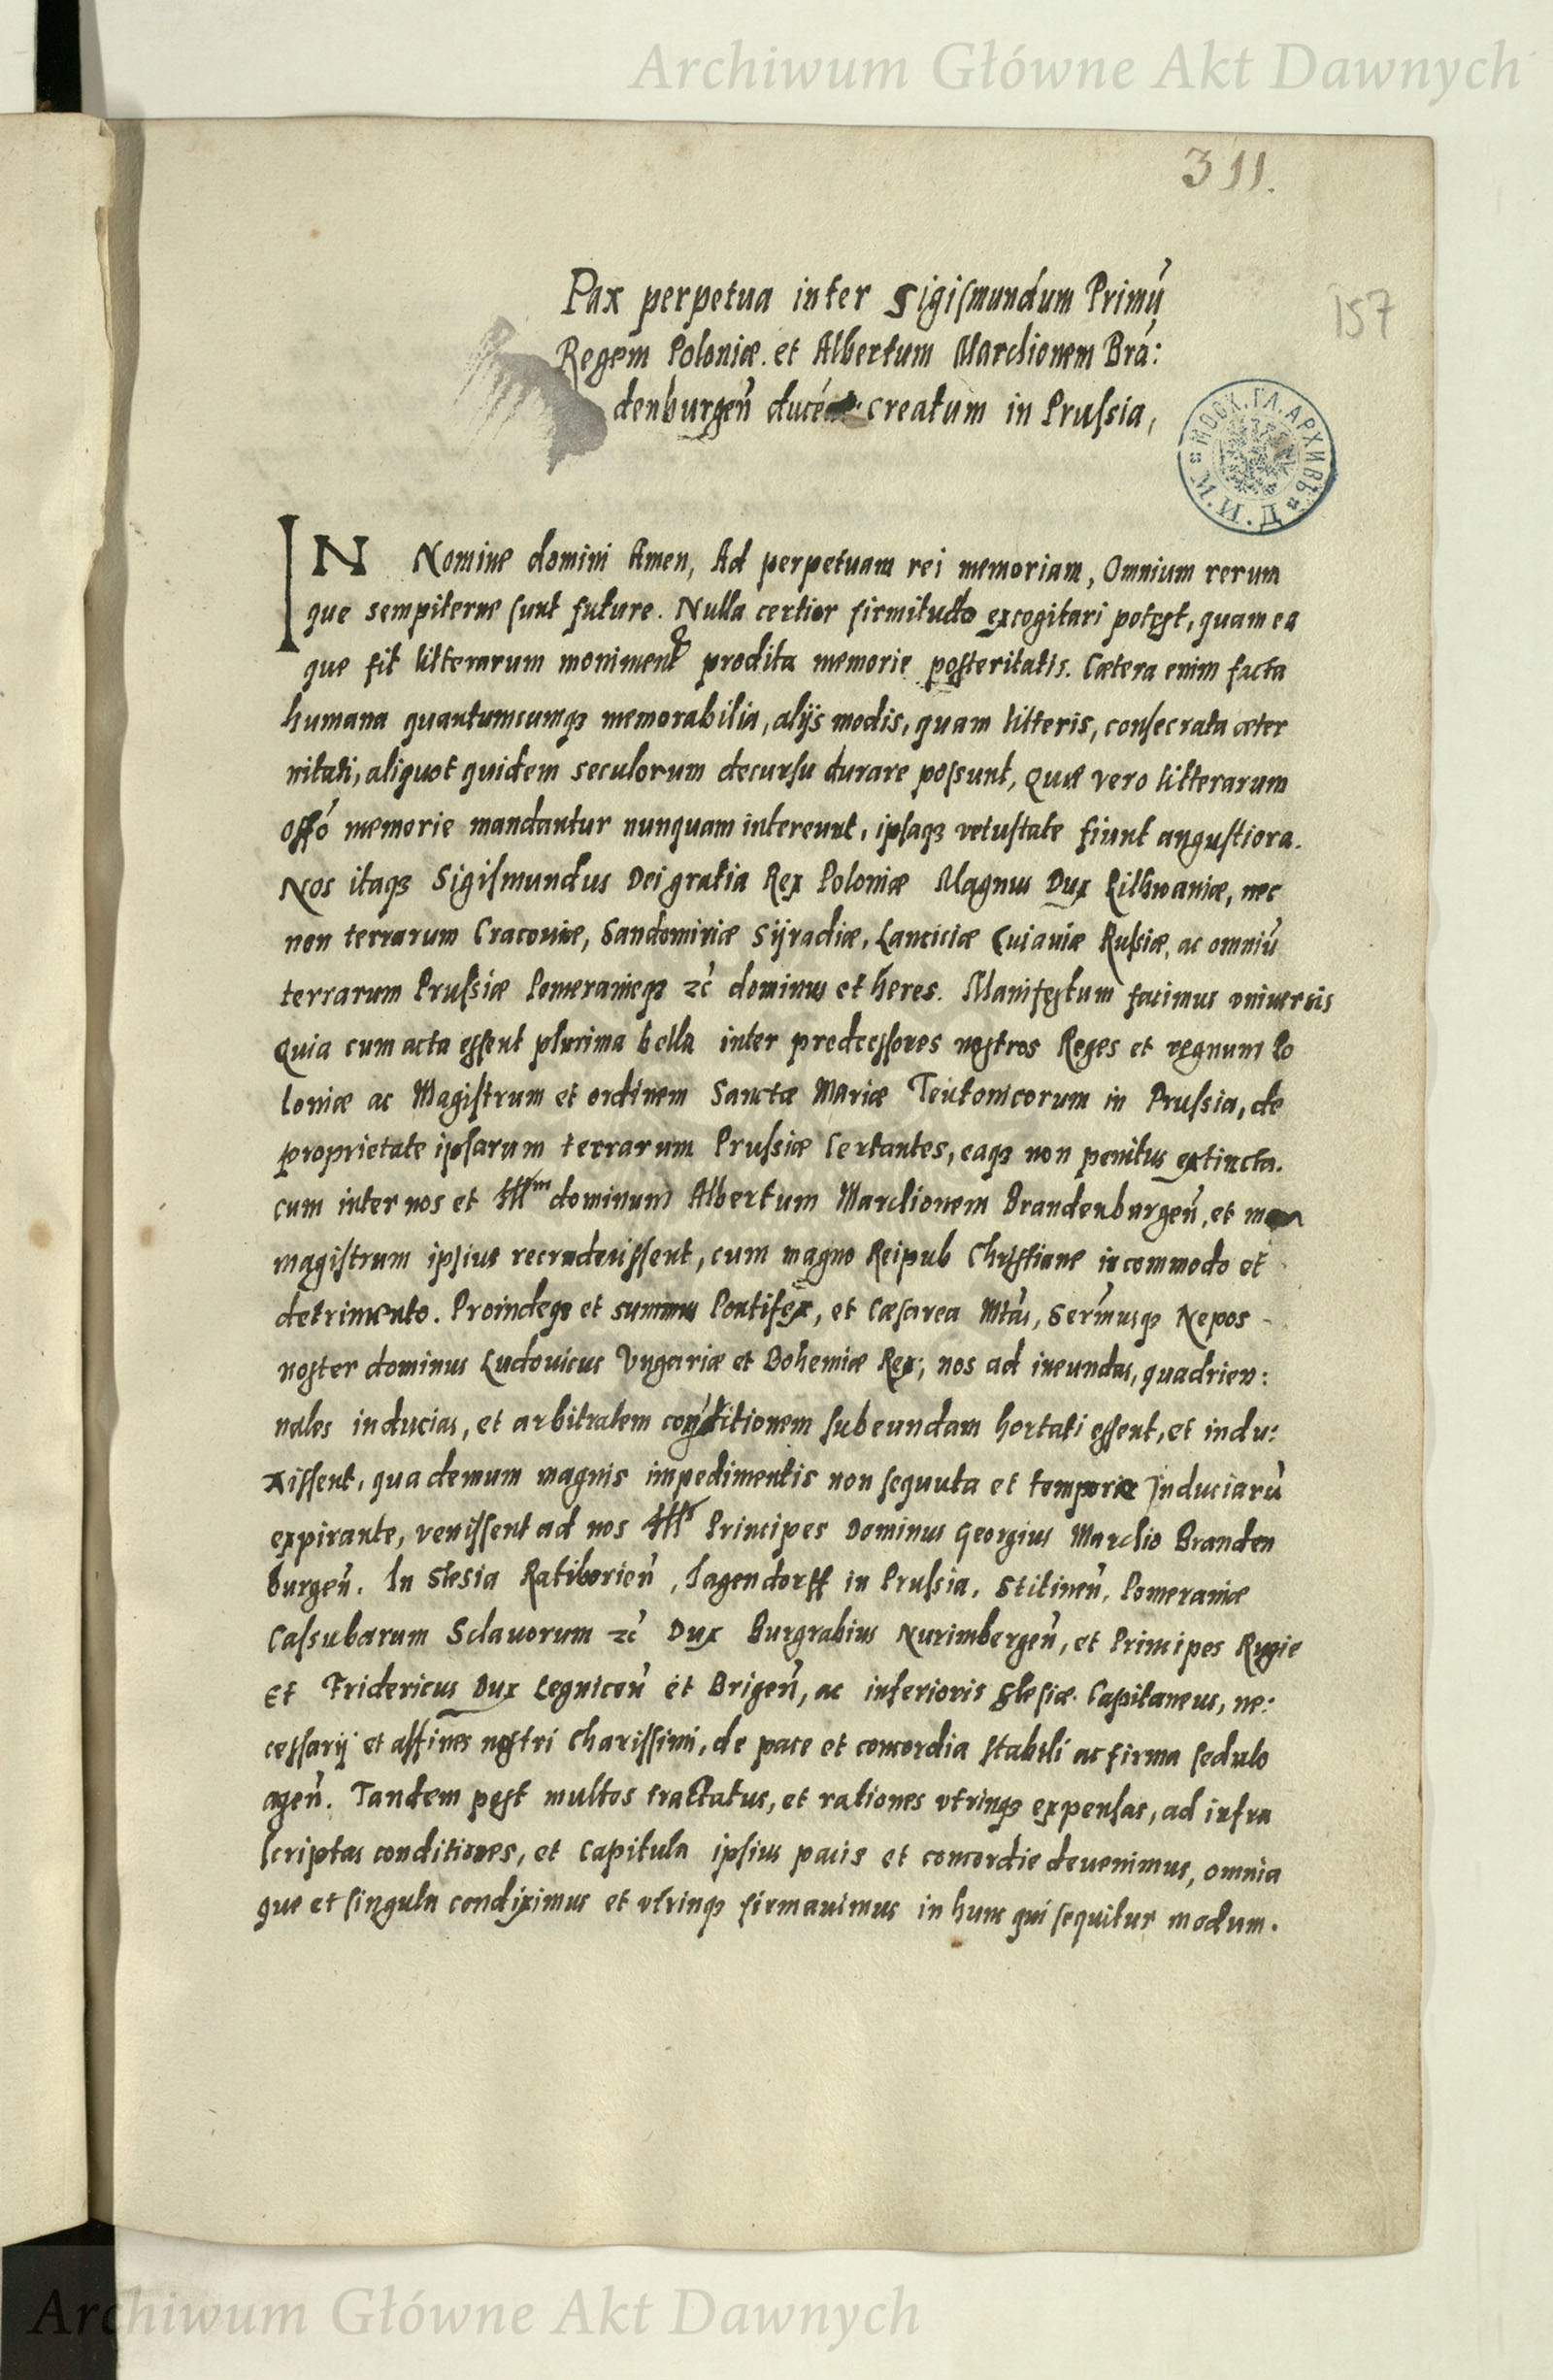 Archiwum Główne Akt Dawnych
311.
157
Pax perpetua inter Sigismundum Primū
Regem Poloniæ. et Albertum Marchionem Brā:
denburgeñ ducē creatum in Prussia,
МОСК. ГЛ. АРХИВЪ М. И. Д.
IN Nomine domini Amen, Ad perpetuam rei memoriam, Omnium rerum
que sempiterne sunt future. Nulla certior firmitudo excogitari potest, quam ea
que fit litterarum moniment prodita memorie posteritatis. Cætera enim facta
humana quantumcumqꝫ memorabilia, alijs modis, quam litteris, consecrata æter
nitati, aliquot quidem seculorum decursu durare possunt, Quæ vero litterarum
offō memorie mandantur nunquam intereunt, ipsaqꝫ vetustate fiunt angustiora.
Nos itaqꝫ Sigismundus Dei gratia Rex Poloniæ Magnus Dux Lithwaniæ, nec
non terrarum Cracoviæ, Sandomiriæ Sijradiæ, Lanciciæ Cuiaviæ Russiæ, ac omniū
terrarum Prussiæ Pomeranieqꝫ ⁊c̃ dominus et heres. Manifestum facimus vniversis
Quia cum acta essent plurima bella inter predecessores nostros Reges et regnum Po
loniæ ac Magistrum et ordinem Sanctæ Mariæ Teutonicorum in Prussia, de
proprietate ipsarum terrarum Prussiæ Certantes, eaqꝫ non penitus extincta.
cum inter nos et Illm dominum Albertum Marchionem Brandenburgeñ, et
magistrum ipsius recruduissent, cum magno Reipub Christiane incommodo et
detrimento. Proindeqꝫ et summus Pontifex, et Cæsarea Mtās, Serm̄usqꝫ Nepos
noster dominus Ludovicus Vngariæ et Bohemiæ Rex, nos ad ineundas, quadrien:
nales inducias, et arbitralem conditionem subeundam hortati essent, et indu:
xissent, qua demum magnis impedimentis non sequuta et tempore Induciarū
expirante, venissent ad nos Illr Principes Dominus Georgius Marchio Branden
burgeñ. In Slesia Ratiborieñ, Jagendorff in Prussia, Stitineñ, Pomeraniæ
Cassubarum Sclavorum ⁊c̃ Dux Burgrabius Nurimbergeñ, et Principes Rugie
Et Fridericus Dux Legniceñ et Brigeñ, ac inferioris Slesiæ Capitaneus, ne:
cessarij et affines nostri charissimi, de pace et concordia stabili ac firma sedulo
ageñ. Tandem post multos tractatus, et rationes vtrinqꝫ expensas, ad infra
scriptas conditiones, et Capitula ipsius pacis et concordie devenimus, omnia
que et singula condiximus et vtrinqꝫ firmavimus in hunc qui sequitur modum.
Archiwum Główne Akt Dawnych